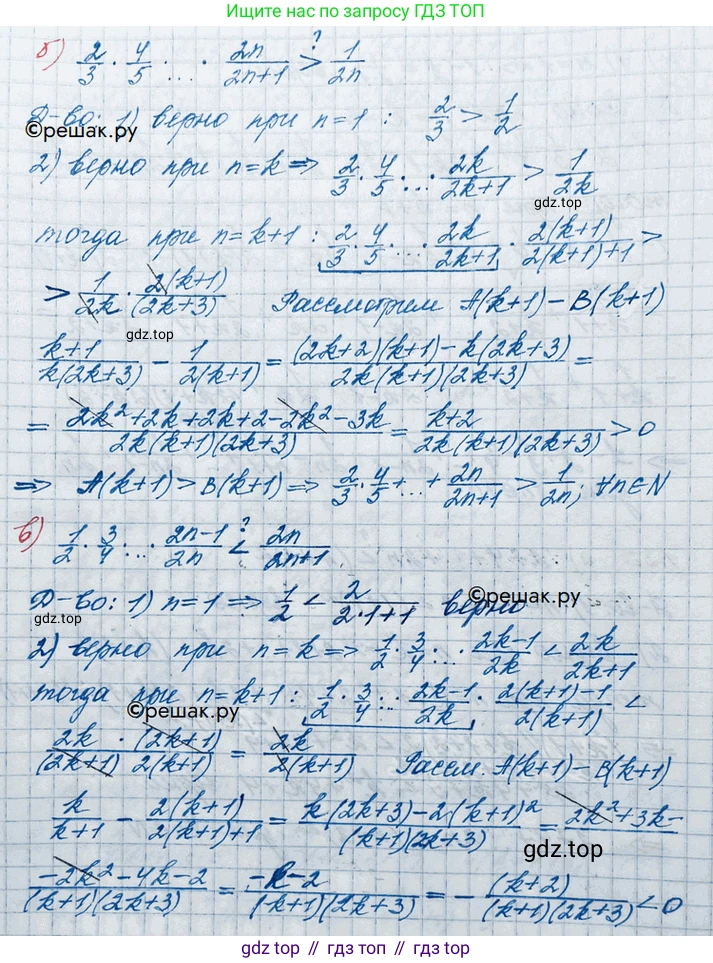 Ищите нас по запросу ГДЗ ТОП
б) 2/3 · 4/5 · ... · 2n/(2n+1) >? 1/(2n)
Д-во: 1) верно при n=1 : 2/3 > 1/2
©решак.ру
2) верно при n=k ⇒ 2/3 · 4/5 · ... · 2k/(2k+1) > 1/(2k)
gdz.top
тогда при n=k+1 : 2/3 · 4/5 · ... · 2k/(2k+1) · 2(k+1)/(2(k+1)+1) >
> 1/(2k) · 2(k+1)/(2k+3) Рассмотрим A(k+1)-B(k+1)
gdz.top
(k+1)/(k(2k+3)) - 1/(2(k+1)) = ((2k+2)(k+1)-k(2k+3))/(2k(k+1)(2k+3)) =
= (2k²+2k+2k+2-2k²-3k)/(2k(k+1)(2k+3)) = (k+2)/(2k(k+1)(2k+3)) > 0
⇒ A(k+1)>B(k+1) ⇒ 2/3 · 4/5 + ... + 2n/(2n+1) > 1/(2n); ∀n∈N
в) 1/2 · 3/4 · ... · (2n-1)/(2n) <? 2n/(2n+1)
©решак.ру
Д-во: 1) n=1 ⇒ 1/2 < 2/(2·1+1) верно
gdz.top
2) верно при n=k ⇒ 1/2 · 3/4 · ... (2k-1)/(2k) < 2k/(2k+1)
тогда при n=k+1 : 1/2 · 3/4 · ... (2k-1)/(2k) · (2(k+1)-1)/(2(k+1)) <
©решак.ру
2k/(2k+1) · (2k+1)/(2(k+1)) = 2k/(2(k+1)) Рассм. A(k+1)-B(k+1)
k/(k+1) - 2(k+1)/(2(k+1)+1) = (k(2k+3)-2(k+1)²)/((k+1)(2k+3)) = 2k²+3k-
gdz.top
(-2k²-4k-2)/((k+1)(2k+3)) = (-k-2)/((k+1)(2k+3)) = -(k+2)/((k+1)(2k+3)) < 0
gdz.top // гдз.топ // гдз топ